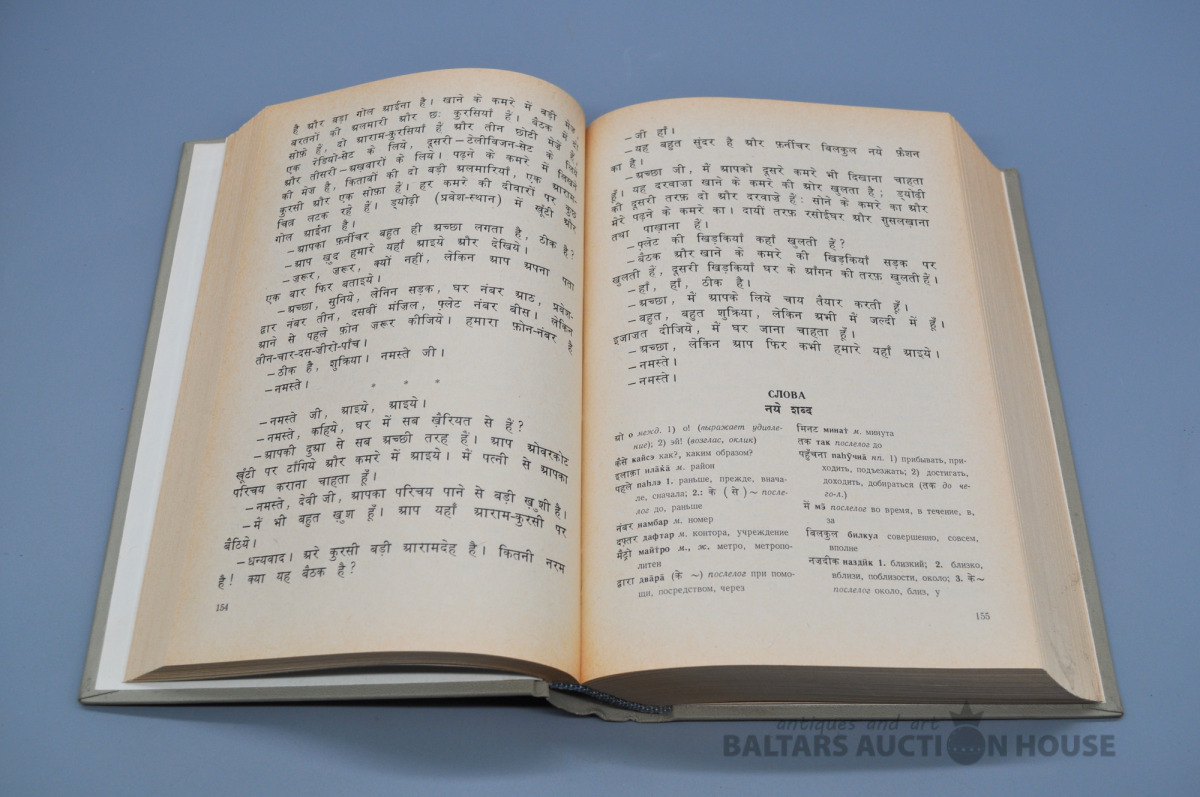 है और बड़ा गोल आईना है। खाने के कमरे में बड़ी मेज़,
बरतनों की अलमारी और छः कुरसियाँ हैं। बैठक में दो
सोफ़े हैं, दो आराम-कुरसियाँ हैं और तीन छोटी मेज़ें हैं,
एक रेडियो-सेट के लिये, दूसरी – टेलीविजन-सेट के लिये
और तीसरी – अख़बारों के लिये। पढ़ने के कमरे में लिखने
की मेज़ है, किताबों की दो बड़ी अलमारियाँ, एक आराम-
कुरसी और एक सोफ़ा है। हर कमरे की दीवारों पर कुछ
चित्र लटक रहे हैं। ड्योढ़ी (प्रवेश-स्थान) में खूँटी और
गोल आईना है।
– आपका फ़र्नीचर बहुत ही अच्छा लगता है, ठीक है?
– आप ख़ुद हमारे यहाँ आइये और देखिये।
– ज़रूर, ज़रूर, क्यों नहीं, लेकिन आप अपना पता
एक बार फिर बताइये।
– अच्छा, सुनिये, लेनिन सड़क, घर नंबर आठ, प्रवेश-
द्वार नंबर तीन, दसवीं मंज़िल, फ़्लेट नंबर बीस। लेकिन
आने से पहले फ़ोन ज़रूर कीजिये। हमारा फ़ोन-नंबर है
तीन-चार-दस-ज़ीरो-पाँच।
– ठीक है, शुक्रिया। नमस्ते जी।
– नमस्ते।
* * *
– नमस्ते जी, आइये, आइये।
– नमस्ते, कहिये, घर में सब ख़ैरियत से हैं?
– आपकी दुआ से सब अच्छी तरह हैं। आप ओवरकोट
खूँटी पर टाँगिये और कमरे में आइये। मैं पत्नी से आपका
परिचय कराना चाहता हूँ।
– नमस्ते, देवी जी, आपका परिचय पाने से बड़ी ख़ुशी है।
– मैं भी बहुत ख़ुश हूँ। आप यहाँ आराम-कुरसी पर
बैठिये।
– धन्यवाद। अरे कुरसी बड़ी आरामदेह है। कितनी नरम
है! क्या यह बैठक है?
154
– जी हाँ।
– यह बहुत सुंदर है और फ़र्नीचर बिलकुल नये फ़ैशन
का है।
– अच्छा जी, मैं आपको दूसरे कमरे भी दिखाना चाहता
हूँ। यह दरवाज़ा खाने के कमरे की ओर खुलता है; ड्योढ़ी
की दूसरी तरफ़ दो और दरवाज़े हैं: सोने के कमरे का और
मेरे पढ़ने के कमरे का। दायीं तरफ़ रसोईघर और गुसलख़ाना
तथा पाख़ाना हैं।
– फ़्लेट की खिड़कियाँ कहाँ खुलती हैं?
– बैठक और खाने के कमरे की खिड़कियाँ सड़क पर
खुलती हैं, दूसरी खिड़कियाँ घर के आँगन की तरफ़ खुलती हैं।
– हाँ, हाँ, ठीक है।
– अच्छा, मैं आपके लिये चाय तैयार करती हूँ।
– बहुत, बहुत शुक्रिया, लेकिन अभी मैं जल्दी में हूँ।
इजाज़त दीजिये, मैं घर जाना चाहता हूँ।
– अच्छा, लेकिन आप फिर कभी हमारे यहाँ आइये।
– नमस्ते।
– नमस्ते।
СЛОВА
नये शब्द
ओ о межд. 1) о! (выражает удивле-
ние); 2) эй! (возглас, оклик)
कैसे кайсэ как?, каким образом?
इलाक़ा илāк̣ā м. район
पहले паhлэ 1. раньше, прежде, внача-
ле, сначала; 2.: के (से) ~ после-
лог до, раньше
नंबर намбар м. номер
दफ़्तर дафтар м. контора, учреждение
मैट्रो майтро м., ж. метро, метропо-
литен
द्वारा двāрā (के ~) послелог при помо-
щи, посредством, через
मिनट минаṭ м. минута
तक так послелог до
पहुँचना паhу̃чнā нп. 1) прибывать, при-
ходить, подъезжать; 2) достигать,
доходить, добираться (तक до че-
го-л.)
में мэ̃ послелог во время, в течение, в,
за
बिलकुल билкул совершенно, совсем,
вполне
नज़दीक наздӣк 1. близкий; 2. близко,
вблизи, поблизости, около; 3. के ~
послелог около, близ, у
155
antiques and art
BALTARS AUCTION HOUSE